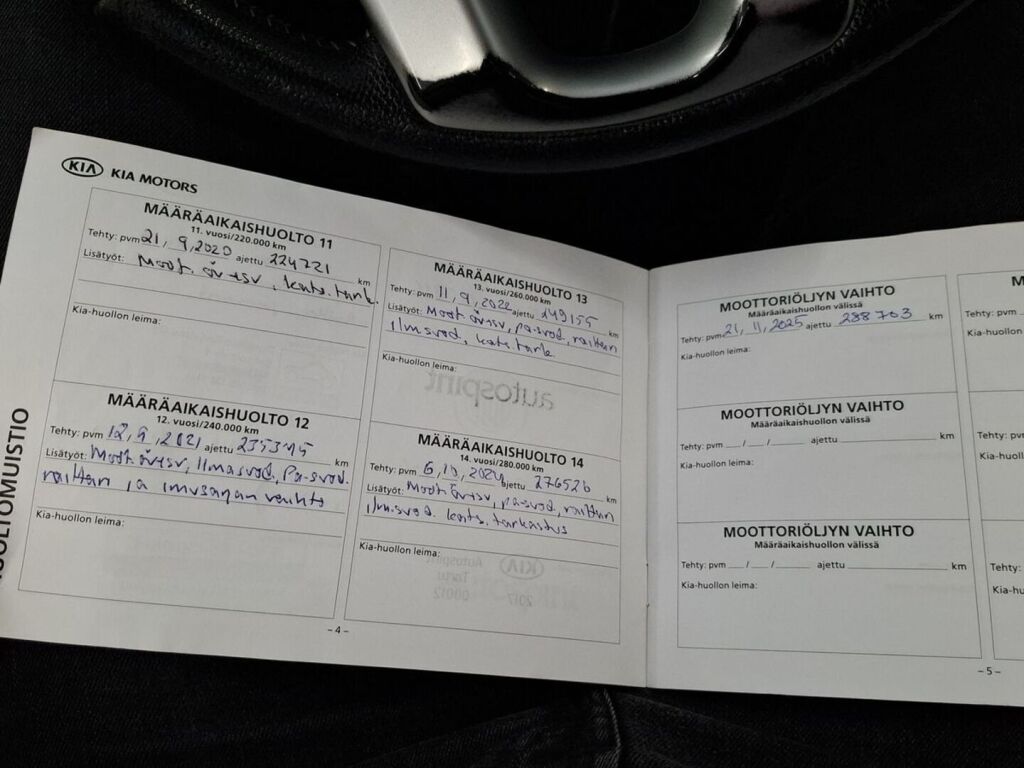 KIA KIA MOTORS
MÄÄRÄAIKAISHUOLTO 11
11. vuosi/220.000 km
Tehty: pvm 21, 9, 2020 ajettu 224721 km
Lisätyöt: Moot. öv+sv, kats. tark.
Kia-huollon leima:
MÄÄRÄAIKAISHUOLTO 12
12. vuosi/240.000 km
Tehty: pvm 12, 9, 2021 ajettu 235345 km
Lisätyöt: Moot öv+sv, Ilmasvod, Pa-svod.
raittiin ja imusarjan vaihto
Kia-huollon leima:
MÄÄRÄAIKAISHUOLTO 13
13. vuosi/260.000 km
Tehty: pvm 11, 9, 2022 ajettu 249155 km
Lisätyöt: Moot öv+sv, pa-svod, raittiin
ilmsvod, kats tark
Kia-huollon leima:
autospirit
MÄÄRÄAIKAISHUOLTO 14
14. vuosi/280.000 km
Tehty: pvm 6, 10, 2024 ajettu 276526 km
Lisätyöt: Moot öv+sv, pa-svod, raittiin
ilm.svod. kats. tarkastus
Kia-huollon leima:
KIA Autospirit
Tartu
2017 00012
HUOLTOMUISTIO
– 4 –
MOOTTORIÖLJYN VAIHTO
Määräaikaishuollon välissä
Tehty: pvm 21, 11, 2025 ajettu 288703 km
Kia-huollon leima:
MOOTTORIÖLJYN VAIHTO
Määräaikaishuollon välissä
Tehty: pvm __ / __ / ____ ajettu ____ km
Kia-huollon leima:
MOOTTORIÖLJYN VAIHTO
Määräaikaishuollon välissä
Tehty: pvm __ / __ / ____ ajettu ____ km
Kia-huollon leima:
– 5 –
Tehty: pvm
Kia-huollon
Tehty: pv
Kia-huoll
Tehty:
Kia-hu